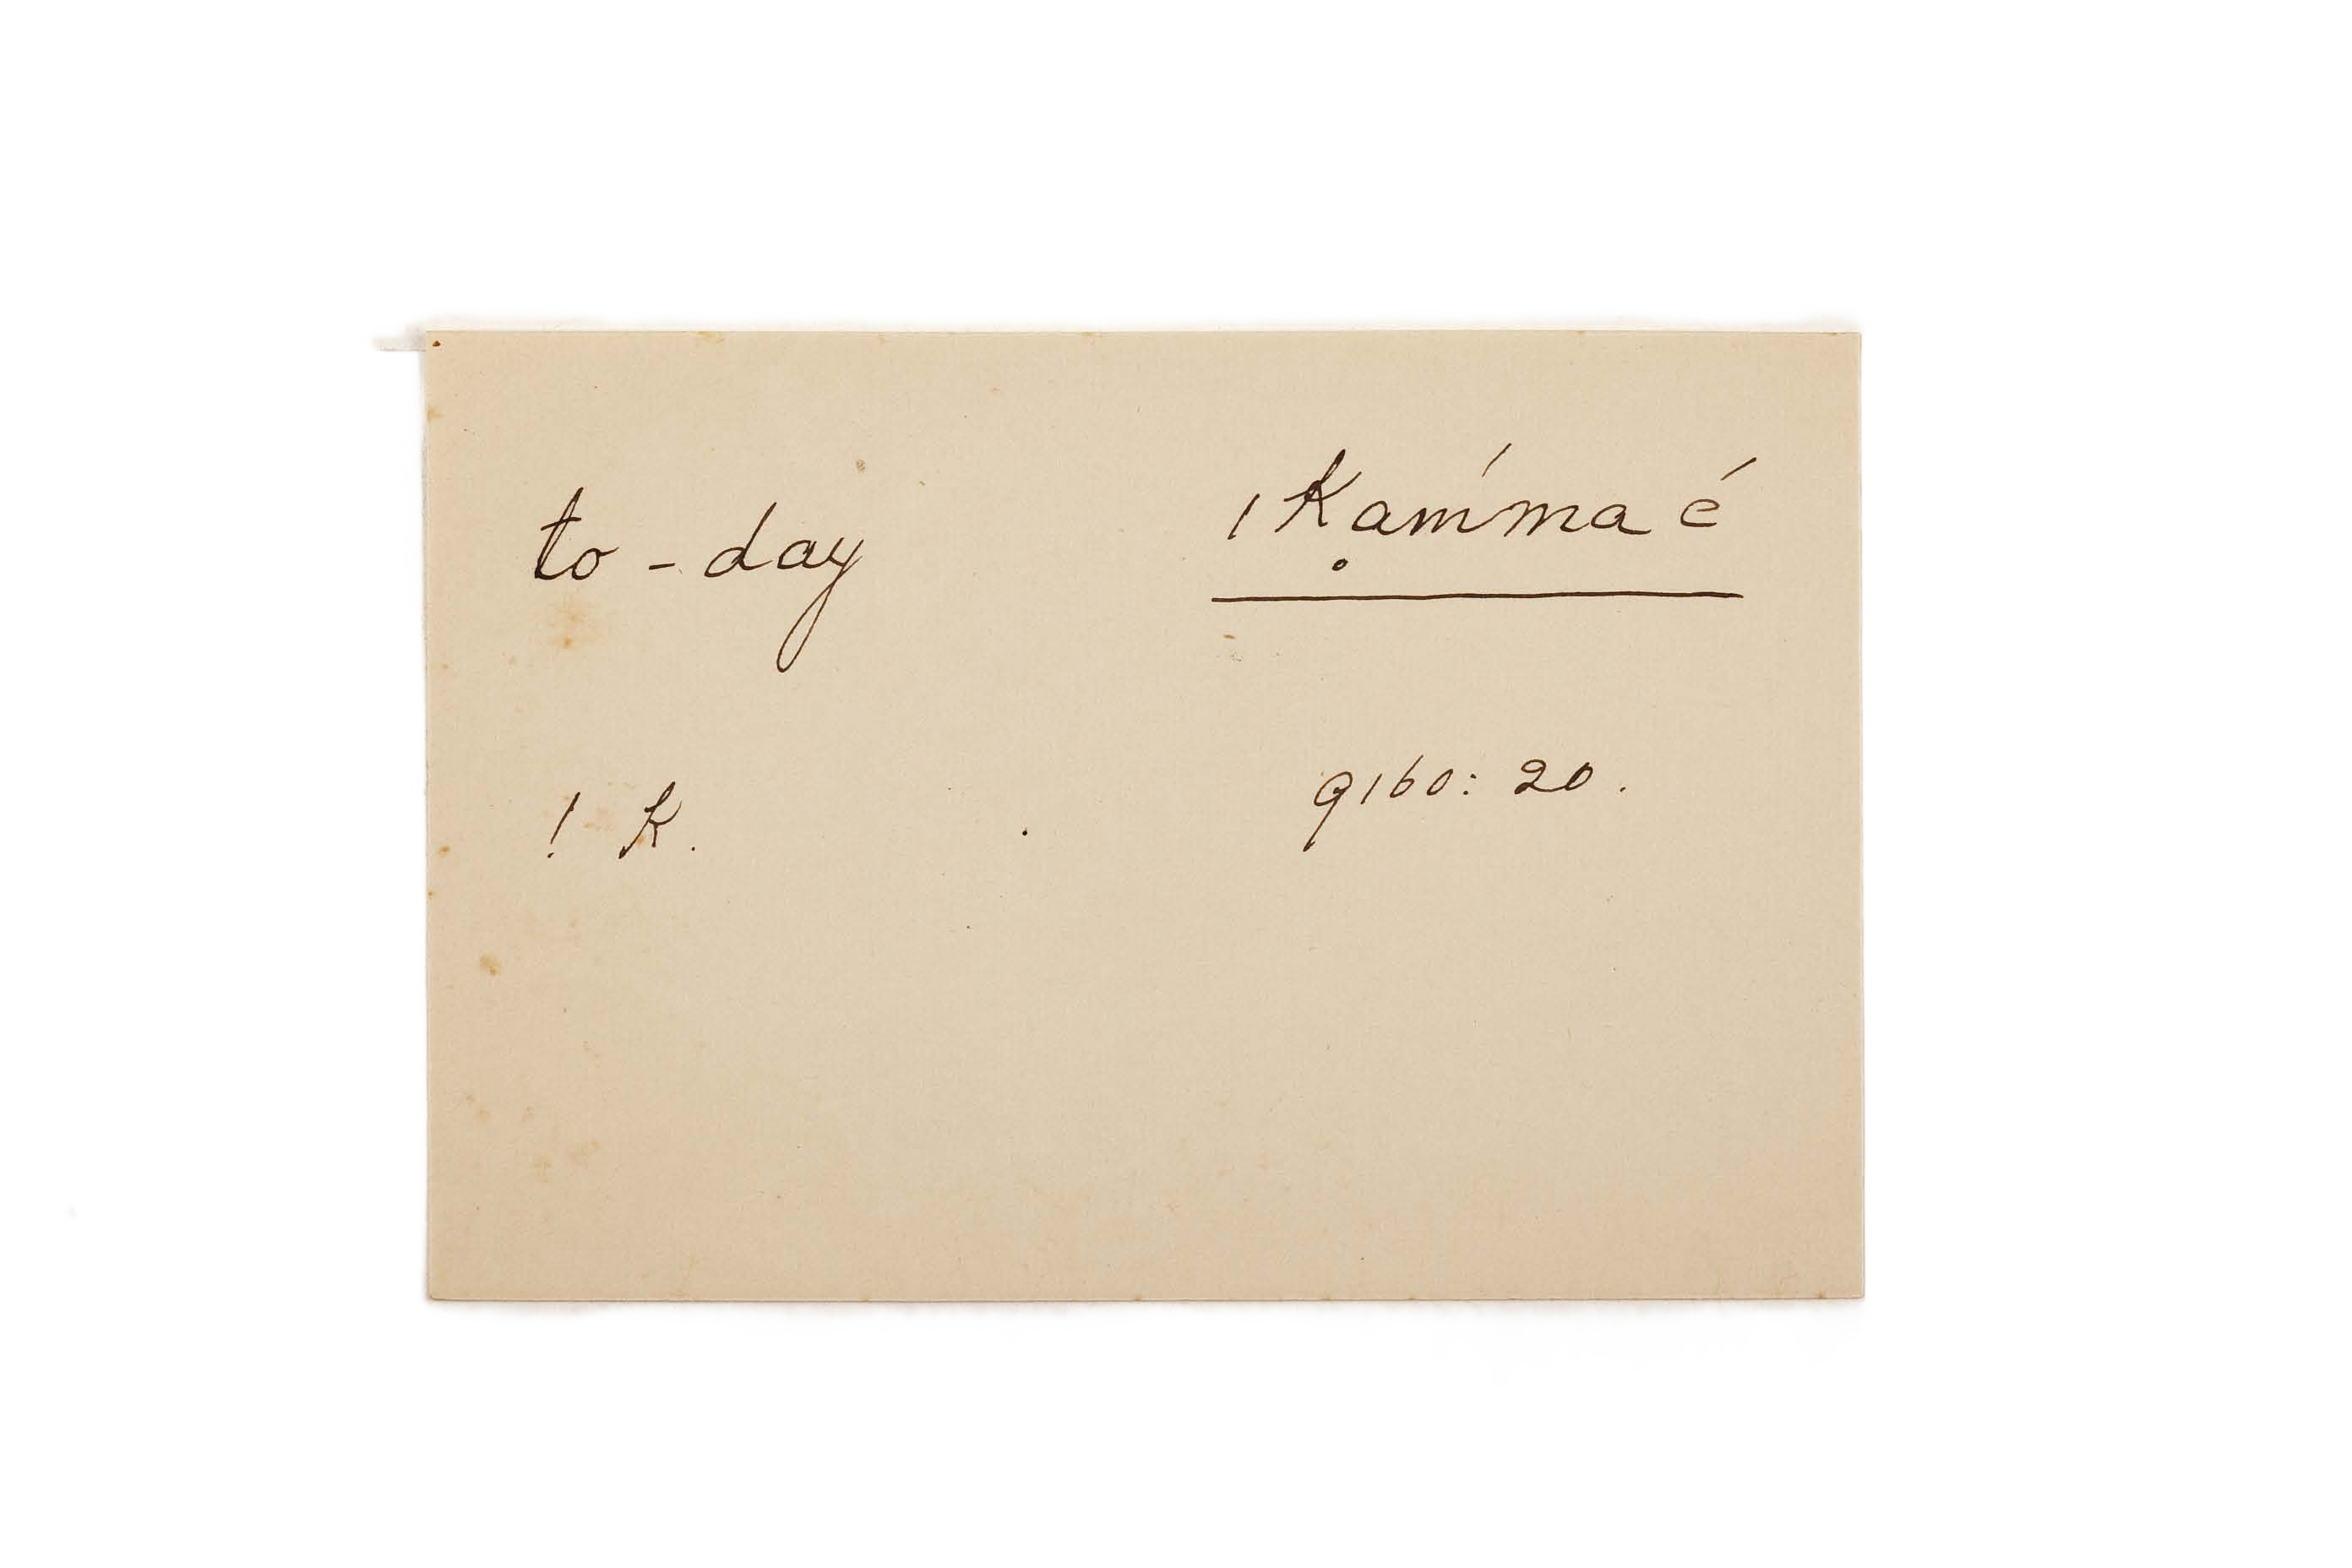 to-day ı K̥am´ma é
! K. 9160: 20.